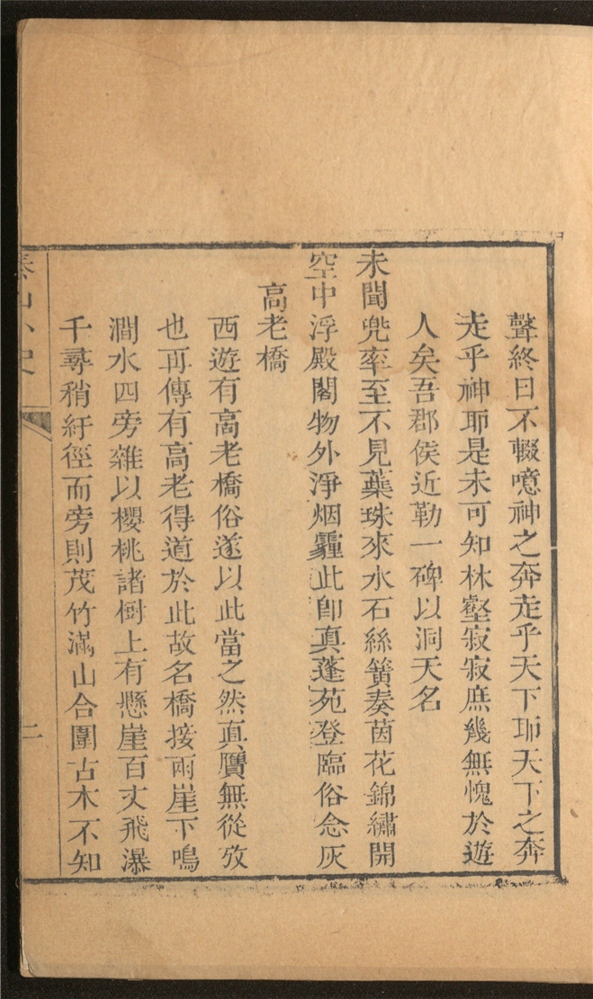 聲終日不輟噫神之奔走乎天下耶天下之奔
走乎神耶是未可知林壑寂寂庶幾無愧於遊
人矣吾郡侯近勒一碑以洞天名
未聞兜率至不見蘂珠來水石絲簧奏茵花錦繡開
空中浮殿閣物外淨烟霾此卽真蓬苑登臨俗念灰
高老橋
西遊有高老橋俗遂以此當之然真贋無從攷
也再傳有高老得道於此故名橋接兩崖下鳴
澗水四旁雜以櫻桃諸樹上有懸崖百丈飛瀑
千尋稍紆徑而旁則茂竹滿山合圍古木不知
泰山小史
二